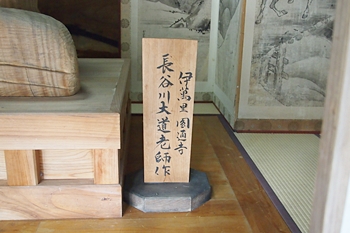 伊萬里 圓通寺
長谷川大道老師作